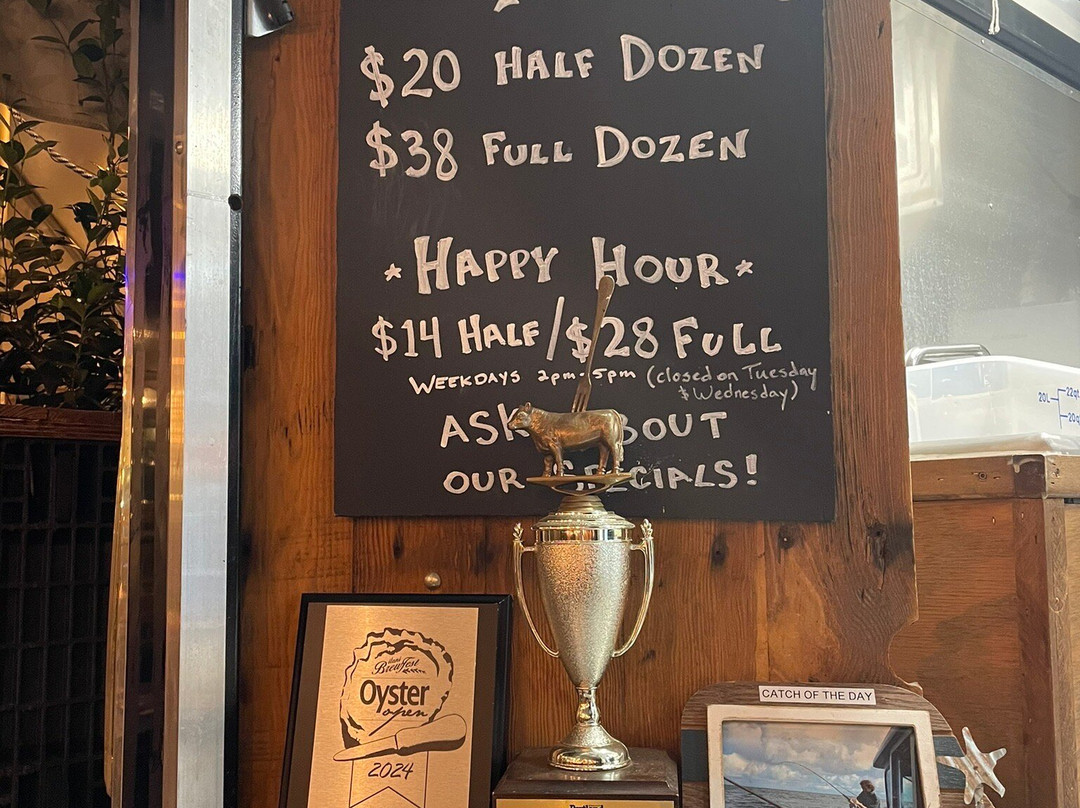 $20 HALF DOZEN
$38 FULL DOZEN
* HAPPY HOUR *
$14 HALF/$28 FULL
WEEKDAYS 2pm-5pm (closed on Tuesday
& Wednesday)
ASK ABOUT
OUR SPECIALS!
BrewFest
Oyster
open
2024
CATCH OF THE DAY
20L
22qt
20q
Portland